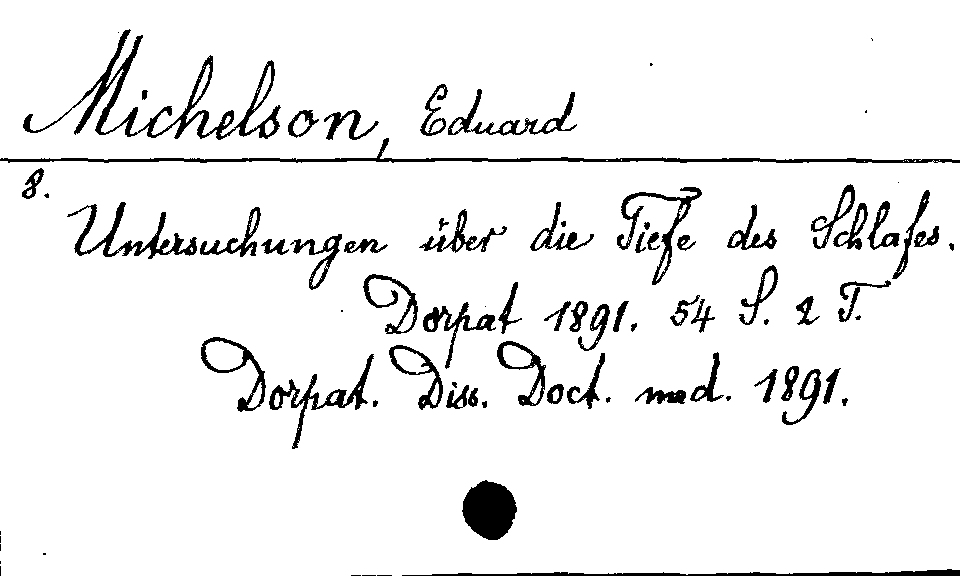 Michelson, Eduard
8.
Untersuchungen über die Tiefe des Schlafes.
Dorpat 1891. 54 S. 2 T.
Dorpat. Diss. Doct. med. 1891.